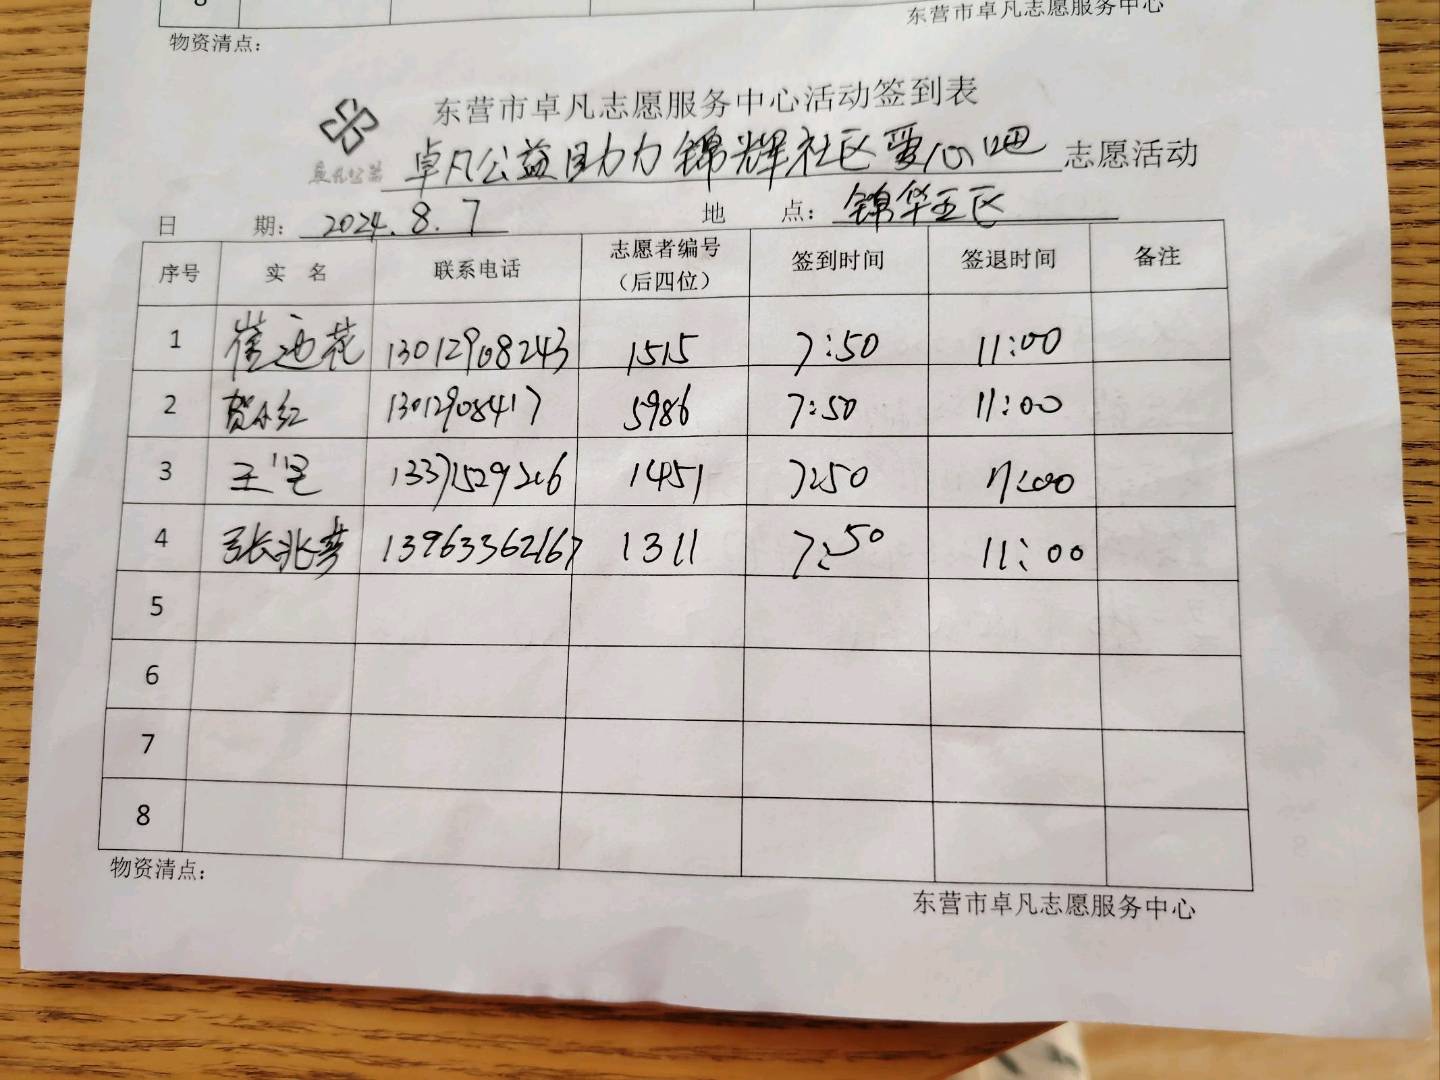 8
东营市卓凡志愿服务中心
物资清点：
东营市卓凡志愿服务中心活动签到表
卓凡公益
卓凡公益助力锦辉社区爱心吧 志愿活动
日 期： 2024.8.7 地 点： 锦华五区
序号 实 名 联系电话 志愿者编号（后四位） 签到时间 签退时间 备注
1 崔迎花 13012908243 1515 7:50 11:00
2 贺小红 13012908417 5986 7:50 11:00
3 王 1451 7:50 11:00
4 张兆 13963362167 1311 7:50 11:00
5
6
7
8
物资清点：
东营市卓凡志愿服务中心